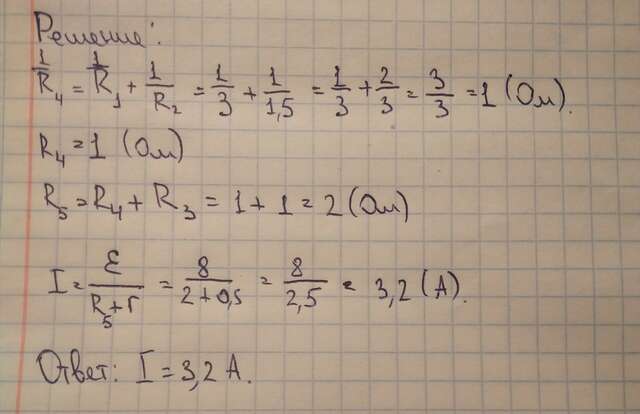 Решение:
1/R₄ = 1/R₁ + 1/R₂ = 1/3 + 1/1,5 = 1/3 + 2/3 = 3/3 = 1 (Ом).
R₄ = 1 (Ом)
R₅ = R₄ + R₃ = 1 + 1 = 2 (Ом)
I = ε/(R₅ + r) = 8/(2 + 0,5) = 8/2,5 = 3,2 (А).
Ответ: I = 3,2 А.